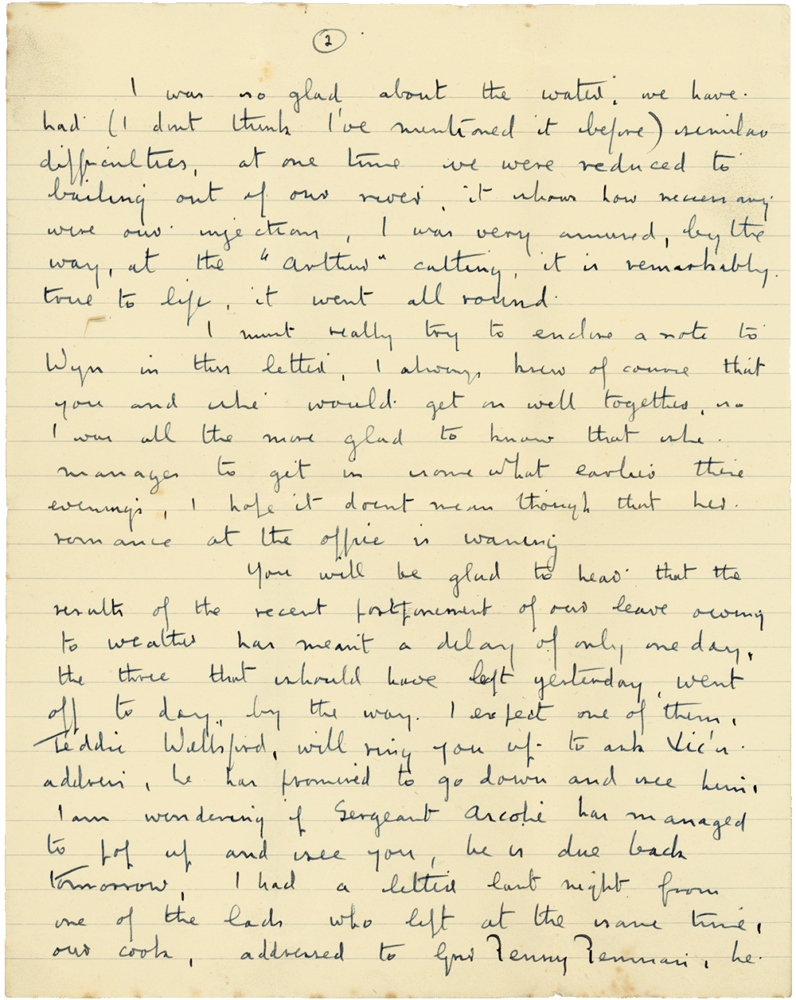 2
I was so glad about the water, we have
had (I dont think I've mentioned it before) similar
difficulties, at one time we were reduced to
bailing out of our river, it shows how necessary
were our injections, I was very amused, by the
way, at the "Arthur" cutting, it is remarkably
true to life, it went all round.
I must really try to enclose a note to
Wyn in this letter, I always knew of course that
you and she would get on well together, so
I was all the more glad to know that she
manages to get in somewhat earlier these
evenings, I hope it doesnt mean though that her
romance at the office is waning
You will be glad to hear that the
results of the recent postponement of our leave owing
to weather has meant a delay of only one day,
the three that should have left yesterday, went
off to day, by the way. I expect one of them,
Teddie Wellsford, will ring you up to ask Vic's
address, he has promised to go down and see him,
I am wondering if Sergeant has managed
to pop up and see you, he is due back
tomorrow, I had a letter last night from
one of the lads who left at the same time,
our cook, addressed to , he